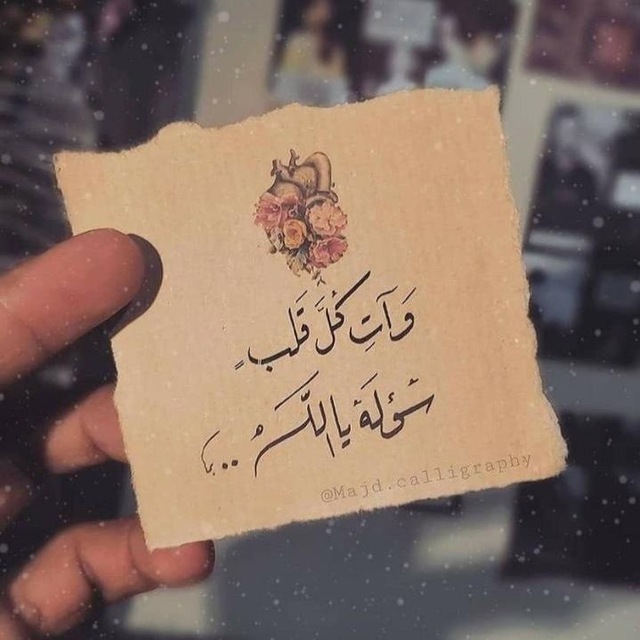 وَآتِ كُلَّ قَلبٍ
سُؤلَهُ يا اللّٰه ..
@Majd.calligraphy